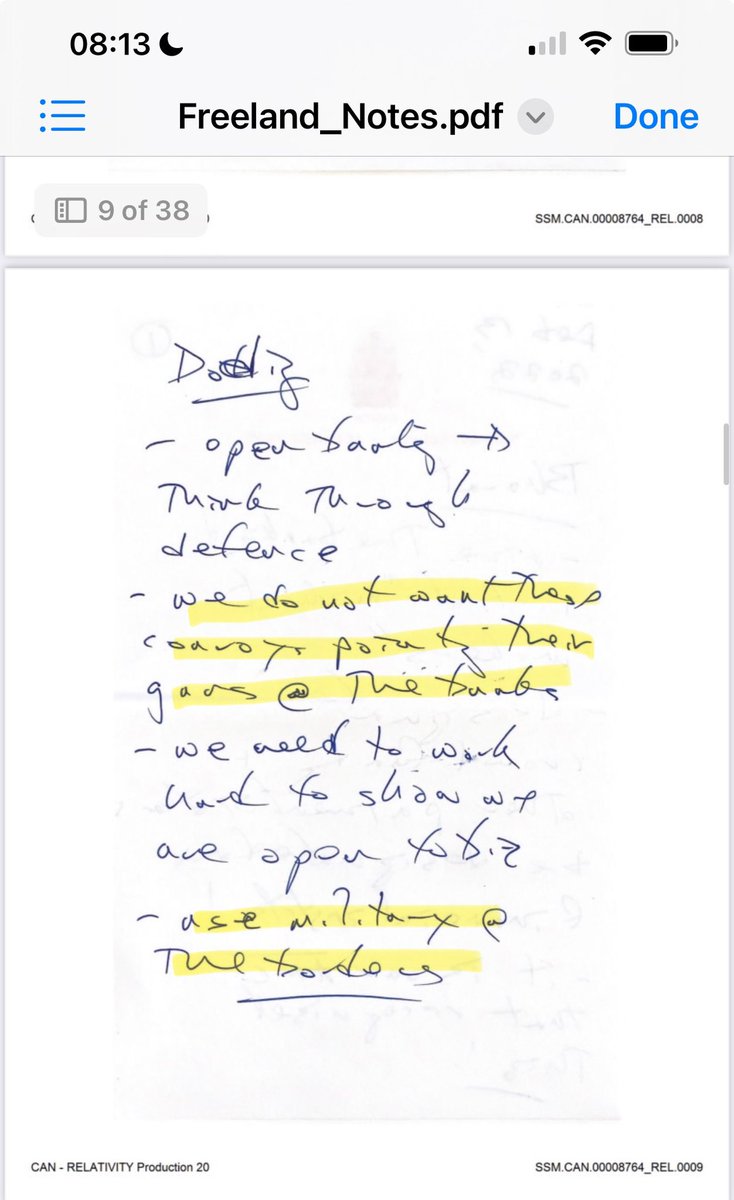 08:13
Freeland_Notes.pdf
Done
9 of 38
SSM.CAN.00008764_REL.0008
- open banking →
Think Through
defence
- we do not want These
convoys pointg their
guns @ The banks
- we need to work
hard to show we
are open to biz
- use military @
The borders
CAN - RELATIVITY Production 20
SSM.CAN.00008764_REL.0009